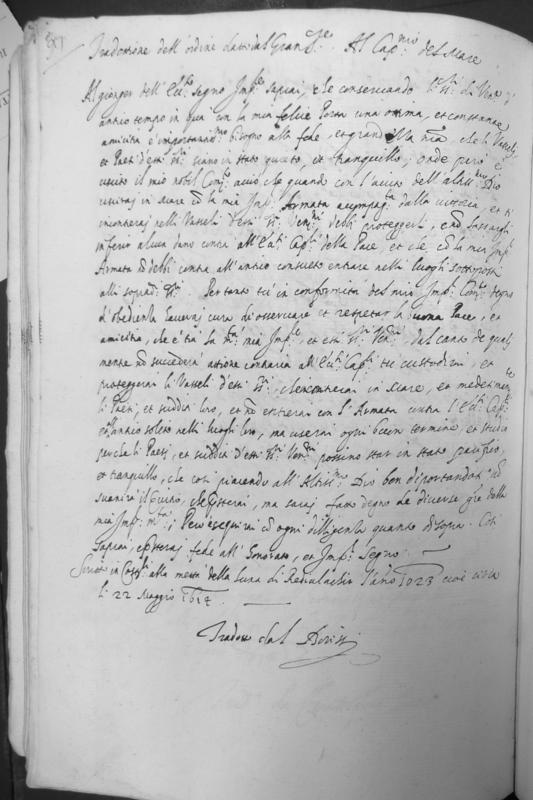 Tradottione dell'ordine dato dal Gran Sre. Al Capno del Mare
Al gionger dell'Ecco segno Imple saprai, che conservando li Sri di Vena d'
antico tempo in qua con la mia felice Porta una ottima, et constante
amicitia è importantmo bisogno alla fede, et grandezza mia, che li Vasseli,
et Paesi d'essi Sri siano in stato quieto, et tranquillo; onde però è
uscito il mio nobil Comto acciò che quando con l'aiuto dell'altissmo Dio
uscirai in Mare co la mia Impl Armata accompagta dalla vittoria, et ti
incontrerai nelli Vasseli d'essi Sri Veni debbi proteggerli, e no lassargli
inferir alcun dano contra all'Ecci Capli della Pace, et che co la mia Impl
Armata no debbi contra all'antico consueto entrare nelli luoghi sottoposti
alli sopradi Sri. Pertanto tu in conformità del mio Impl Comto degno
d'obedienza haverai cura di osservare et rispettar la buona Pace, et
amicitia, che è tra la Mtà mia Imple, et essi Sri Veni, dal canto de quali
mentre no succederà attione contraria all'Ecci Capli tu custodirai, et
proteggerai li Vasseli d'essi Sri, che incontrerai in Mare, et medetmante
li Paesi, et sudditi loro, et no entrerai con l'Armata contra l'Ecci Capli
et l'antico solito nelli luoghi loro, ma userai ogni buon termine, et studio
perche li Paesi, et sudditi d'essi Sri Veni possino star in stato pacifico,
et tranquillo, che così piacendo all'Altissmo Dio ben diportandoti no
mia Impl Mtà; Però eseguirai co ogni dilligenza quanto di sopra. Così
saprai, e presterai fede all'honorato, et Impl segno.
Scritto in Costli alla metà della luna di l'anno 1023 cioè circa
li 22 Maggio 1614.
Tradou dal Borissi